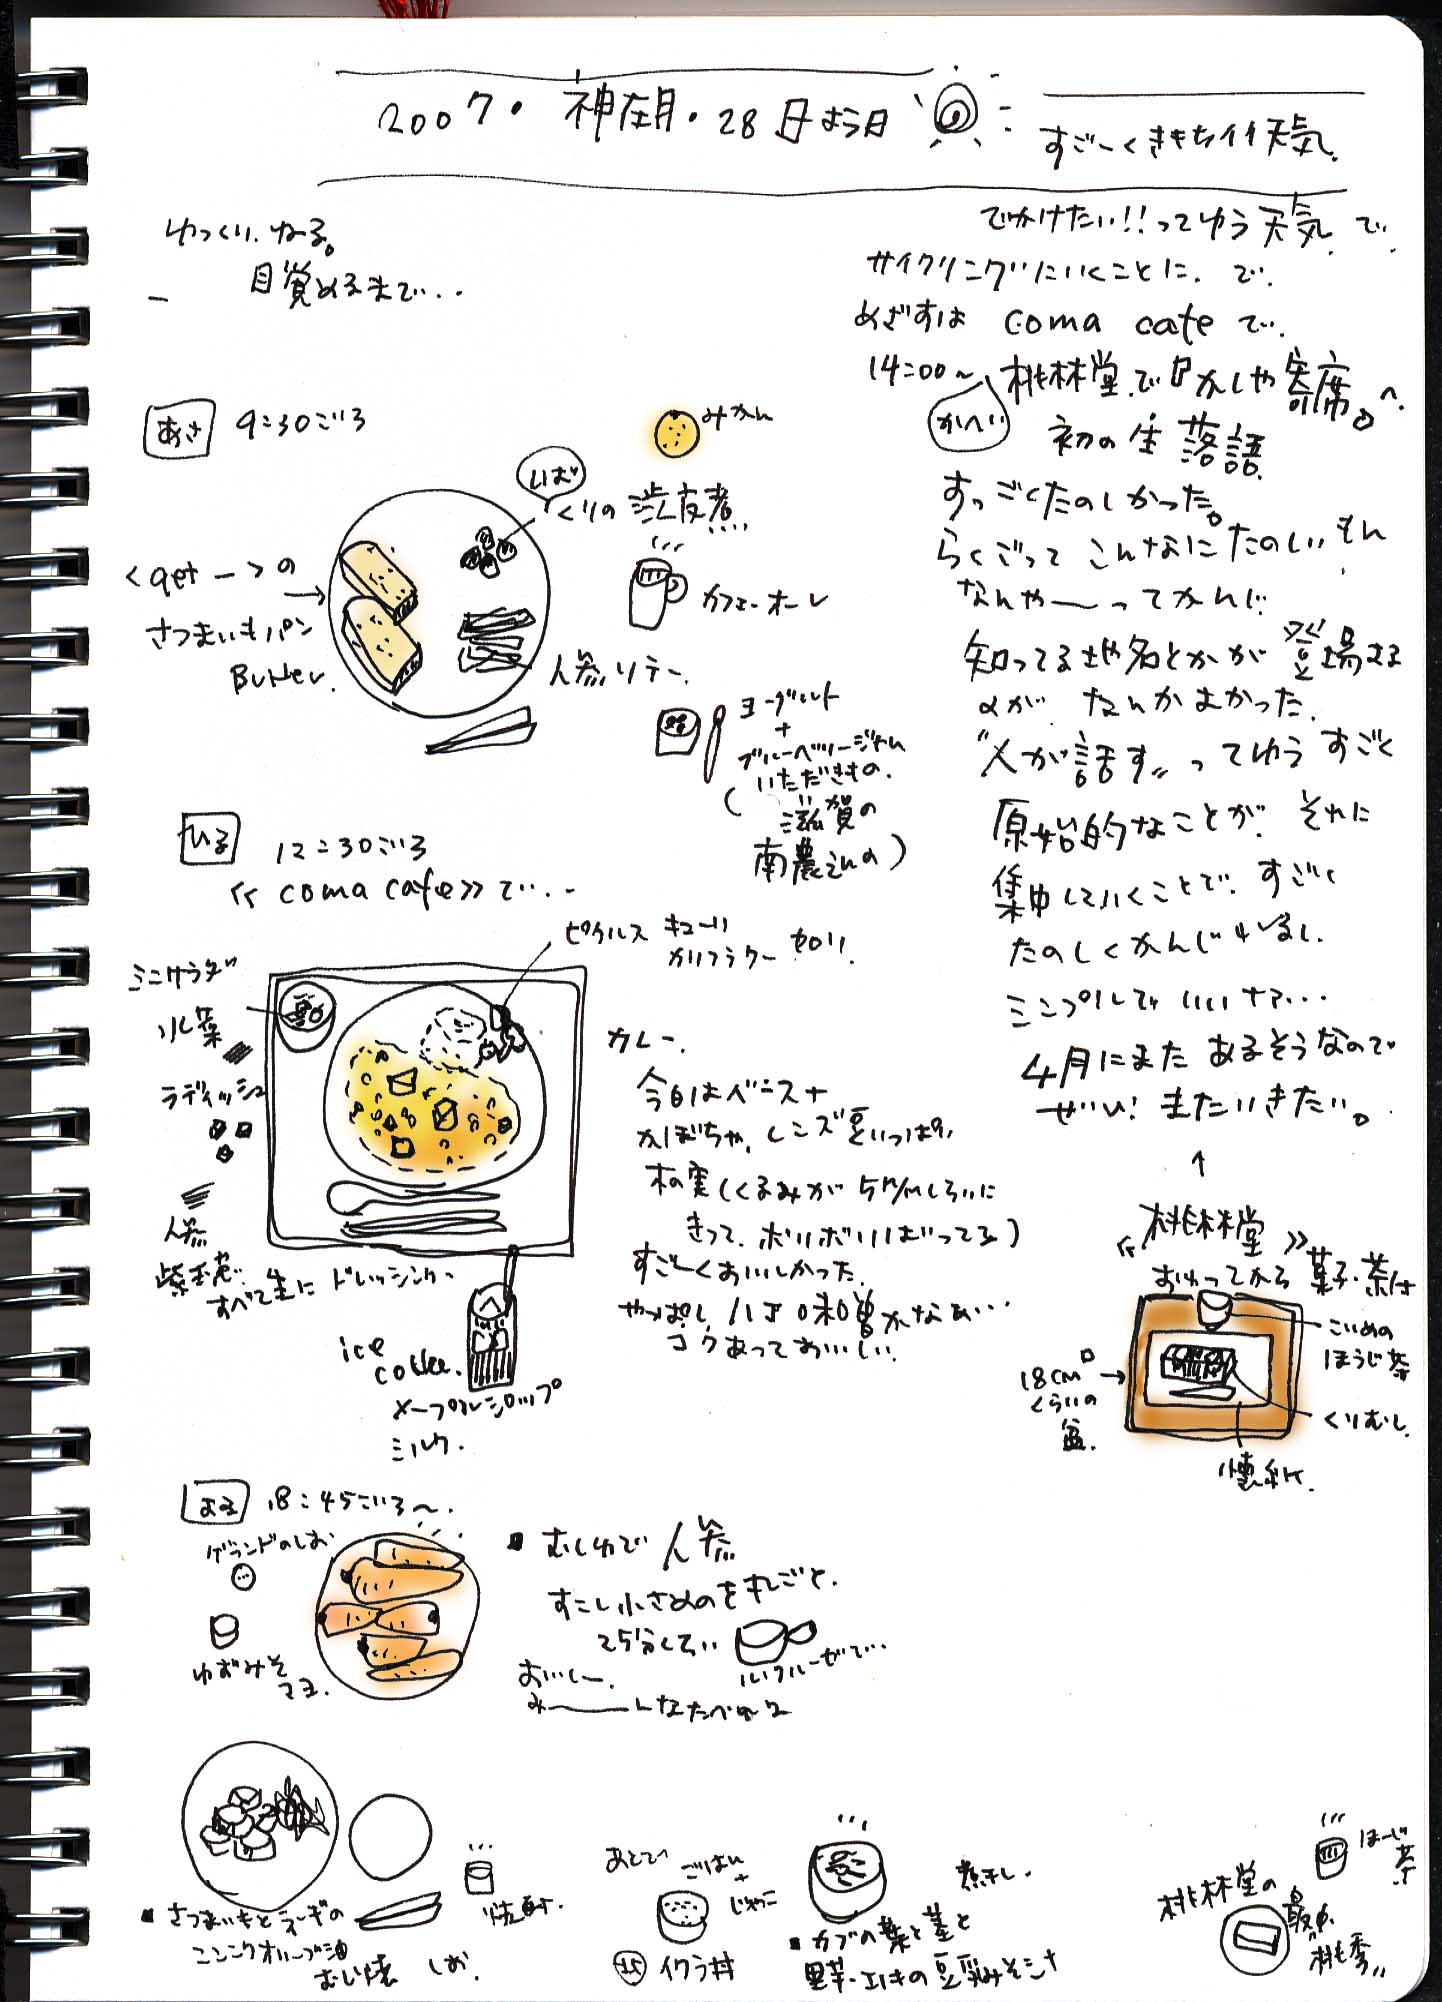 2007・神在月・28日よう日
すごーくきもちイイ天気.
ゆっくり.ねる。
目覚めるまで...
でかけたい!!ってゆう天気.で.
サイクリングにいくことに.で.
めざすは coma cafe で.
14:00〜桃林堂で『かしや寄席。へ.
かへい
初の生落語.
すっごくたのしかった。
らくごって こんなにたのしいもん
なんやーってかんじ.
知ってる地名とかが登場する
のが なんかよかった.
"人が話す〃ってゆうすごく
原始的なことが.それに
集中していくことで.すごく
たのしくかんじいるし.
シンプルでいいナァ...
4月にまたあるそうなので
ぜひ!またいきたい。
↑
《桃林堂》
おわってから菓子・茶付
こいめの
ほうじ茶
18cm
くらいの
盆.
くりむし.
懐紙.
あさ 9:30ごろ
みかん
くりの渋皮煮
<get ー>の
さつまいもパン
Butter.
カフェオーレ
人参ソテー.
ヨーグルト
+
ブルーベリージャム
いただきもの.
(滋賀の
南農さんの)
ひる 12:30ごろ
《coma cafe》で...
ピクルス キューリ
カリフラワー
ミニサラダ
水菜
ラディッシュ
人参
すべて生に ドレッシング
カレー.
今日はベースナ
かぼちゃ.レンズ豆といっぱい
木の実(くるみが5m/mくらいに
きって.ボリボリ
すごーくおいしかった.
やっぱし 八丁味噌かなぁ...
コクあっておいしい.
ice
coffee.
メープルシロップ
ミルク.
よる 18:45ごろ〜.
ゲランドのしお
ゆずみそ
マヨ.
■むしゆで人参
すこし小さめのを丸ごと.
25分くらい
ルクルーゼで...
おいしー.
みーーんなたべれる
■さつまいもと
オリーブ油
むし焼 しお.
焼酎.
あとで
ごはん
+
じゃこ
イクラ丼
煮干し.
■カブの葉と茎と
里芋・エノキの豆乳みそ汁
ほーじ
茶
桃林堂の
最中.
"桃季〃